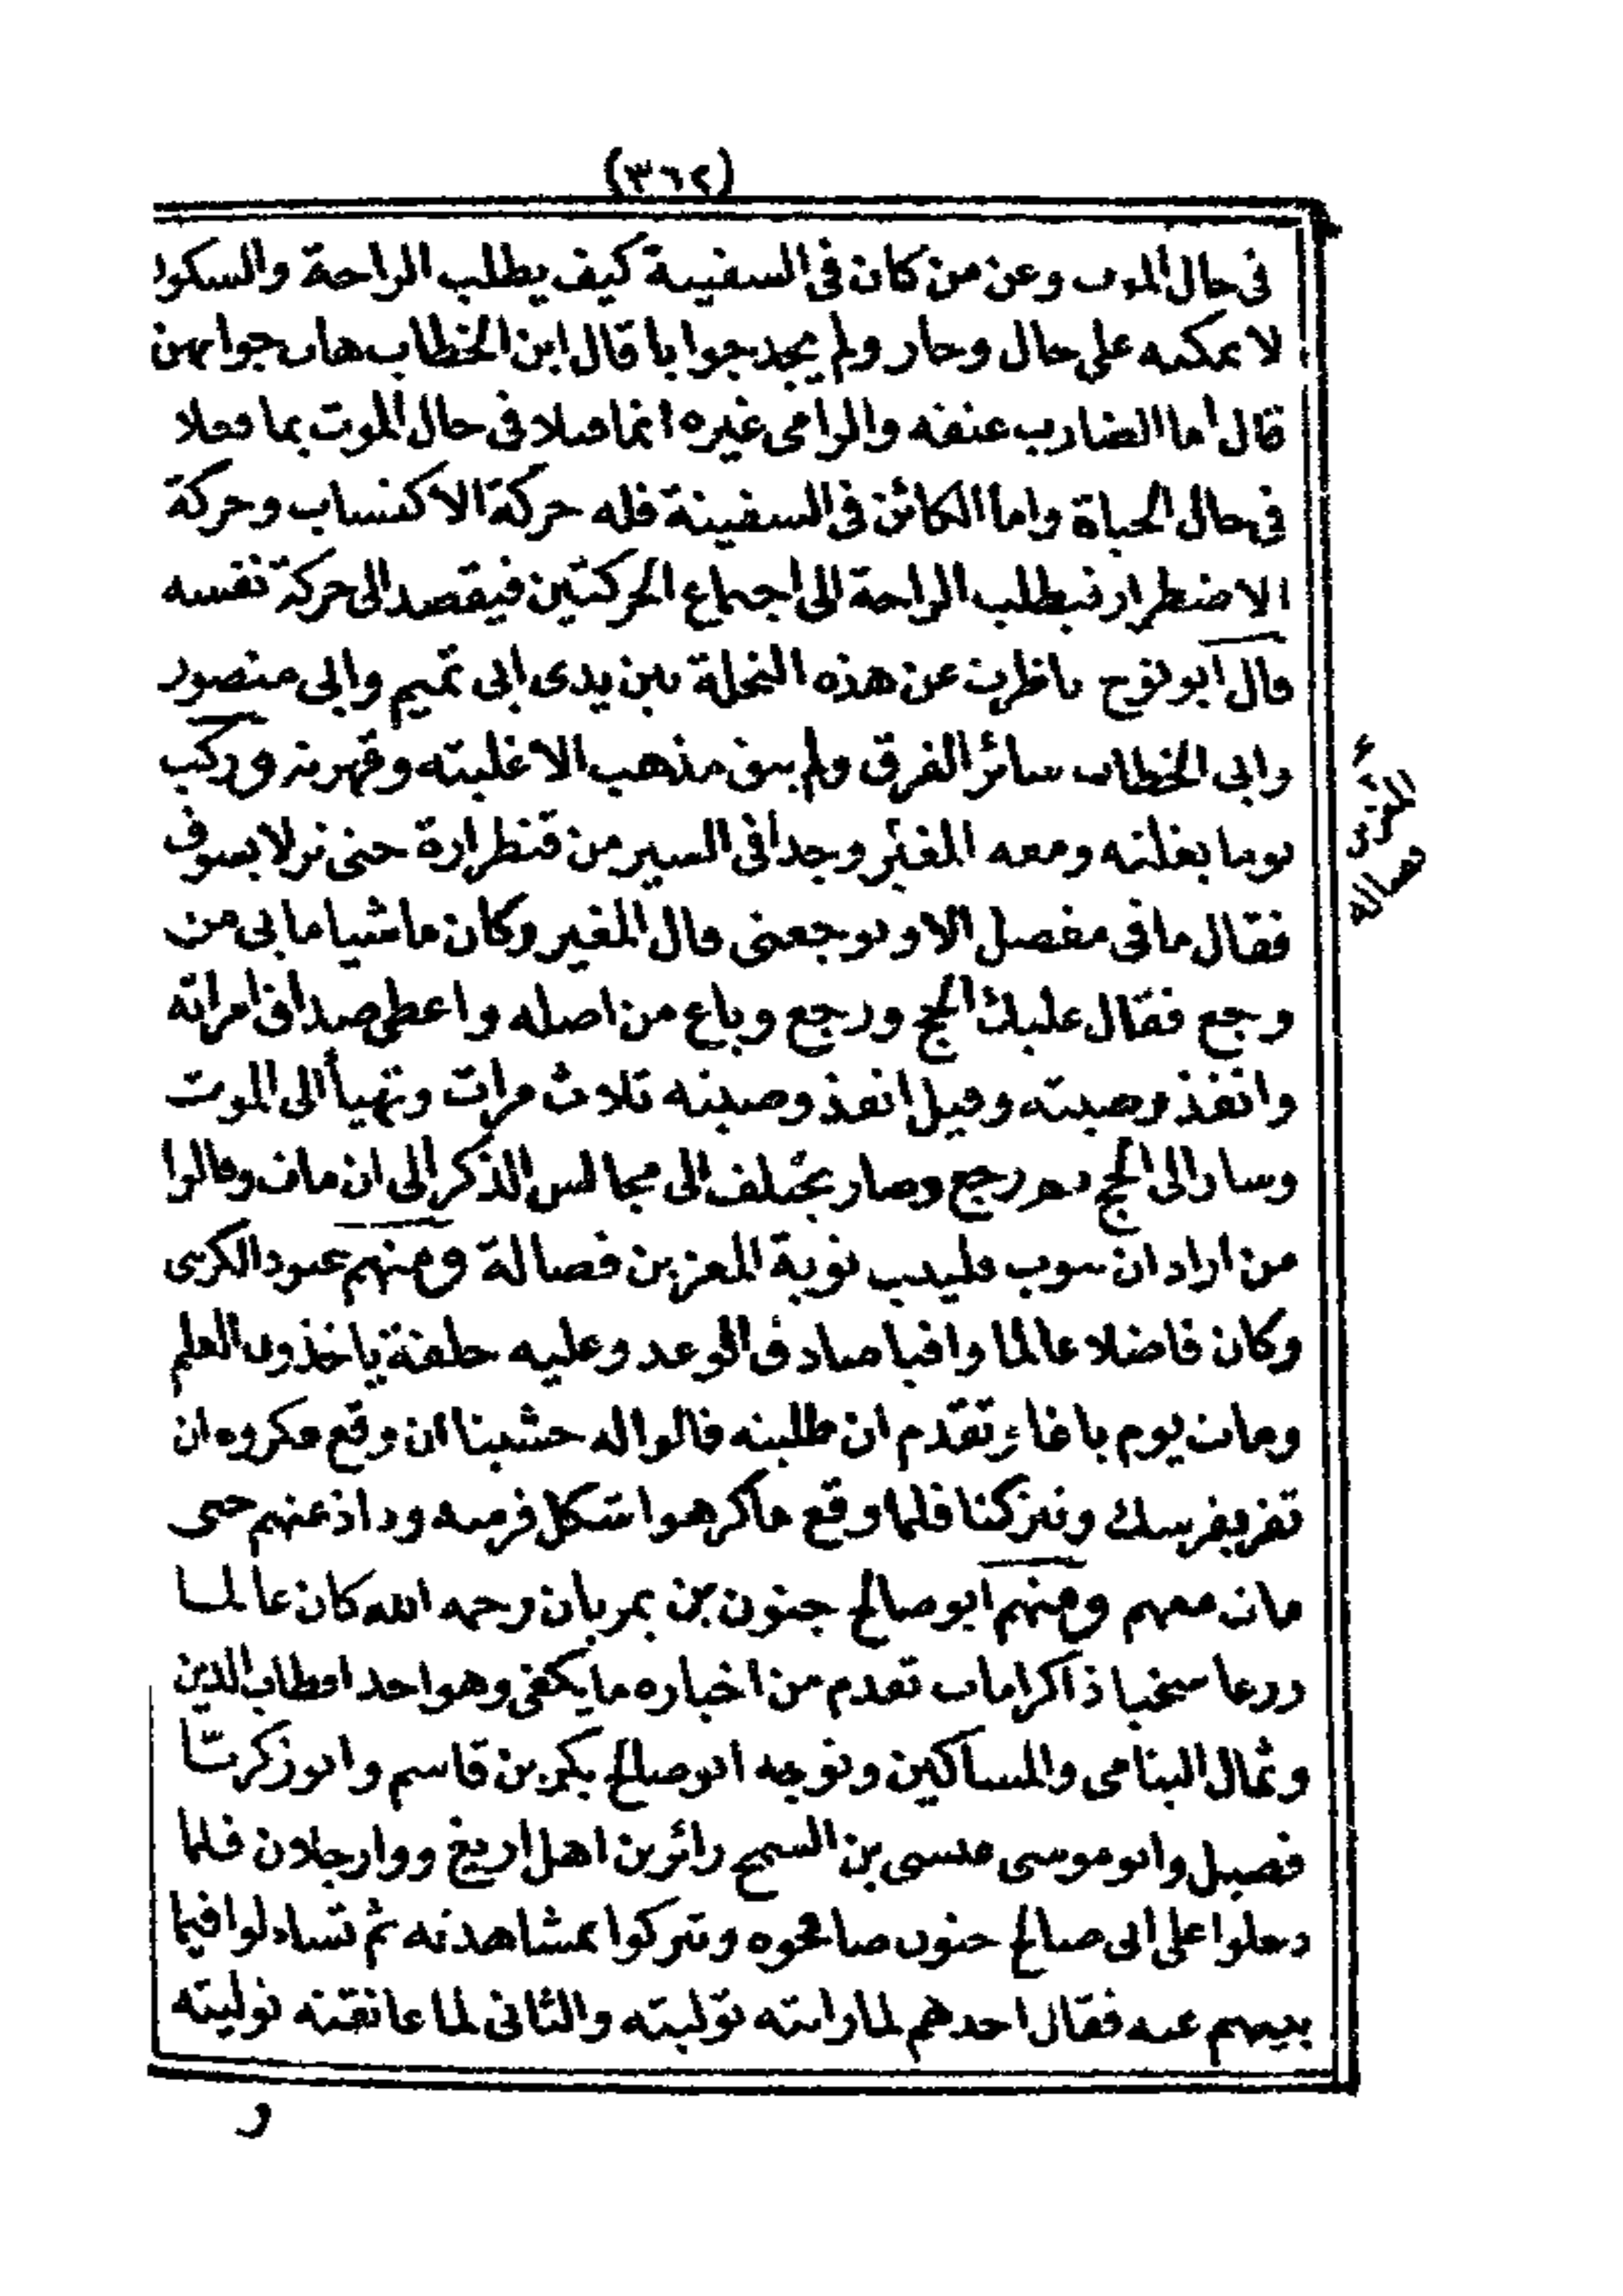 (٣٦٢)
في حال الموت وعن من كان في السفينة كيف يطلب الراحة والسكون
لا يمكنه على حال وحار ولم يجد جوابا قال ابن الخطاب هات جوابهن
قال اما الضارب عنقه والرامى غيره انما فعلا في حال الموت بما فعلا
في حال الحياة واما الكائن في السفينة فله حركة الاكتساب وحركة
الاضطرار فيطلب الراحة الى اجتماع الحركتين فيقصد الى حركة نفسه
قال ابو نوح ناظرت عن هذه النحلة بين يدى ابى تميم وابى منصور
وابى الخطاب سائر الفرق ولم يبق مذهب الا غلبته وقهرته وركب
يوما بغلته ومعه المغير وجدا في السير من قنطرارة حتى نزلا
فقال ما في مفصل الا ويوجعنى قال المغير وكان ماشيا ما بى من
وجع فقال عليك الحج ورجع وباع من اصله واعطى صداق امراته
وانفذ وصيته وقيل انفذ وصيته ثلاث مرات وتهيأ الى الموت
وسار الى الحج ثم رجع وصار يختلف الى مجالس الذكر الى ان مات وقالوا
من اراد ان يتوب فليتب توبة المعز بن فصالة ومنهم عبود الكزى
وكان فاضلا عالما وافيا صادق الوعد وعليه حلقة ياخذون العلم
ومات يوم باغاء تقدم ان طلبته قالوا له خشينا ان وقع مكروه ان
تفر بفرسك وتتركنا فلما وقع ما كرهوا شكل فرسه وداد عنهم حتى
مات معهم ومنهم ابو صالح جنون بن يمريان رحمه الله كان عالما
ورعا سخيا ذا كرامات تقدم من اخباره ما يكفى وهو احد اقطاب الدين
وثمال اليتامى والمساكين وتوجه ابو صالح بكر بن قاسم وابو زكريا
فصيل وابو موسى عيسى بن السمح زائرين اهل اريغ ووارجلان فلما
دخلوا على ابى صالح جنون صافحوه وتبركوا بمشاهدته ثم تساءلوا فيما
بينهم عنه فقال احدهم لما رايته توليته والثانى لما عانقته توليته